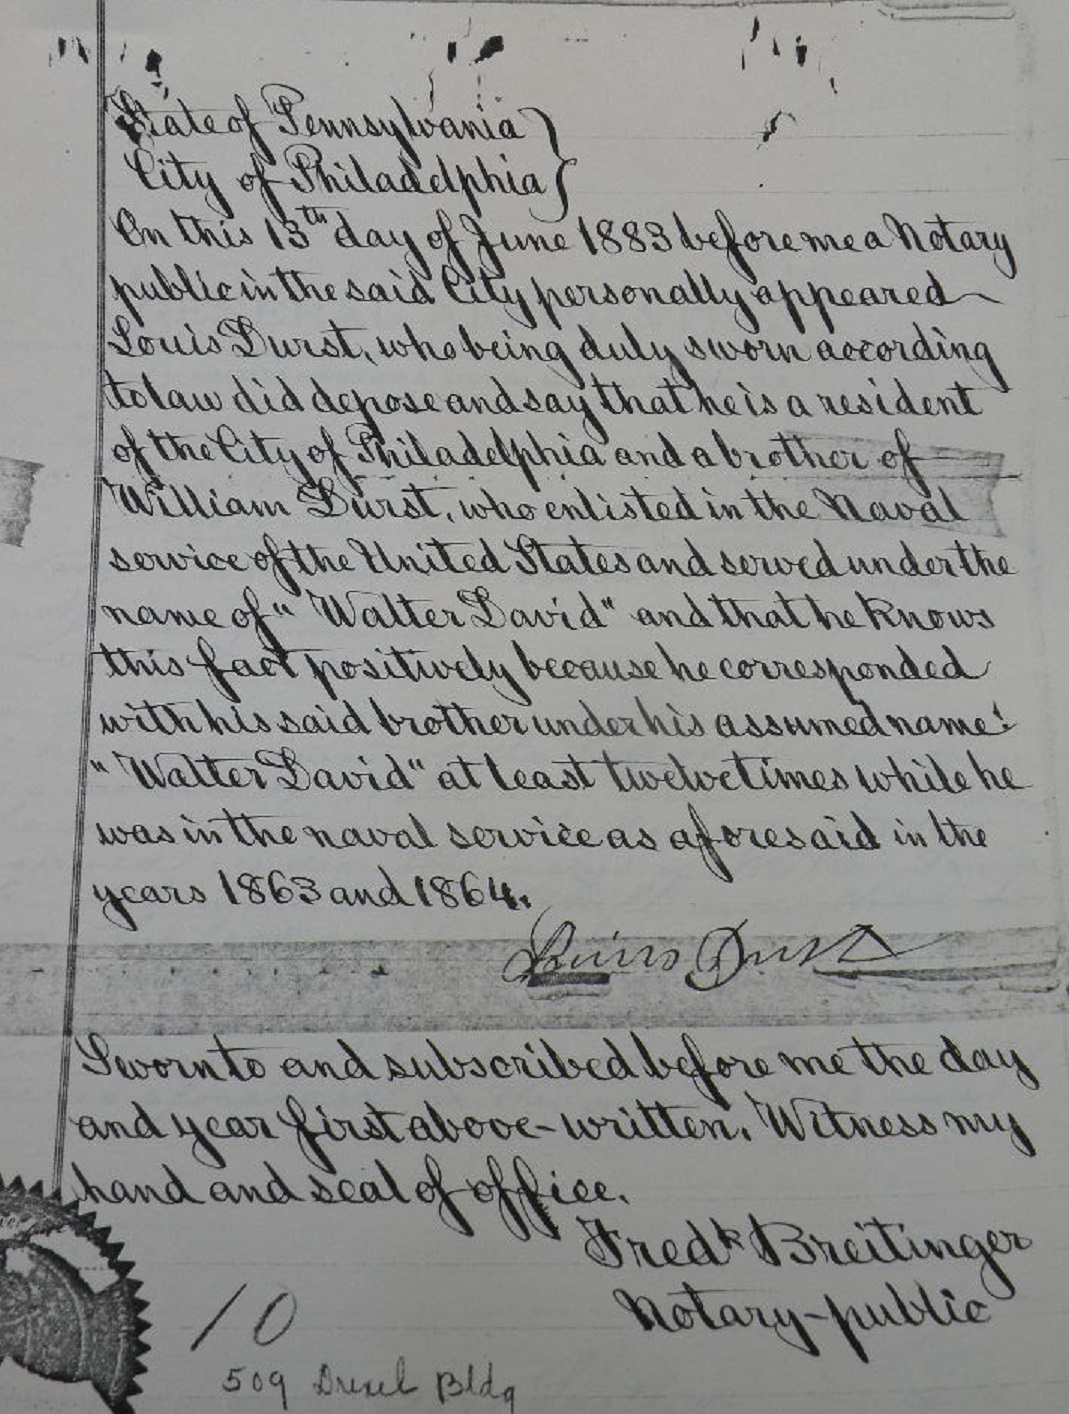 State of Pennsylvania }
City of Philadelphia }
On this 13th day of June 1883 before me a Notary
public in the said City personally appeared
Louis Durst, who being duly sworn according
to law did depose and say that he is a resident
of the City of Philadelphia and a brother of
William Durst, who enlisted in the Naval
service of the United States and served under the
name of " Walter David" and that he knows
this fact positively because he corresponded
with his said brother under his assumed name:
" Walter David" at least twelve times while he
was in the naval service as aforesaid in the
years 1863 and 1864.
Louis Durst
Sworn to and subscribed before me the day
and year first above-written. Witness my
hand and seal of office.
Fredk Breitinger
Notary-public
10
509 Drexel Bldg